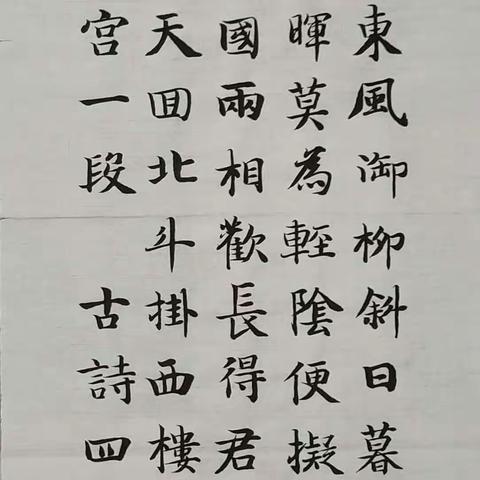 東風御柳斜日暮
暉莫為輕陰便擬
國兩相歡長得君
天回北斗掛西樓
宫一段 古詩四